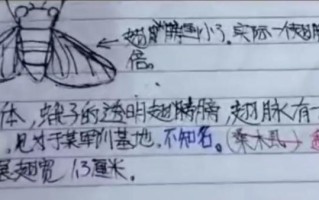 ← 翅膀画小了.实际一个翅膀
倍。
体,锯子的透明翅膀膀,翅脉有一
,见于某军训基地.不知名。(桑木虱→
展翅宽 1.3厘米.